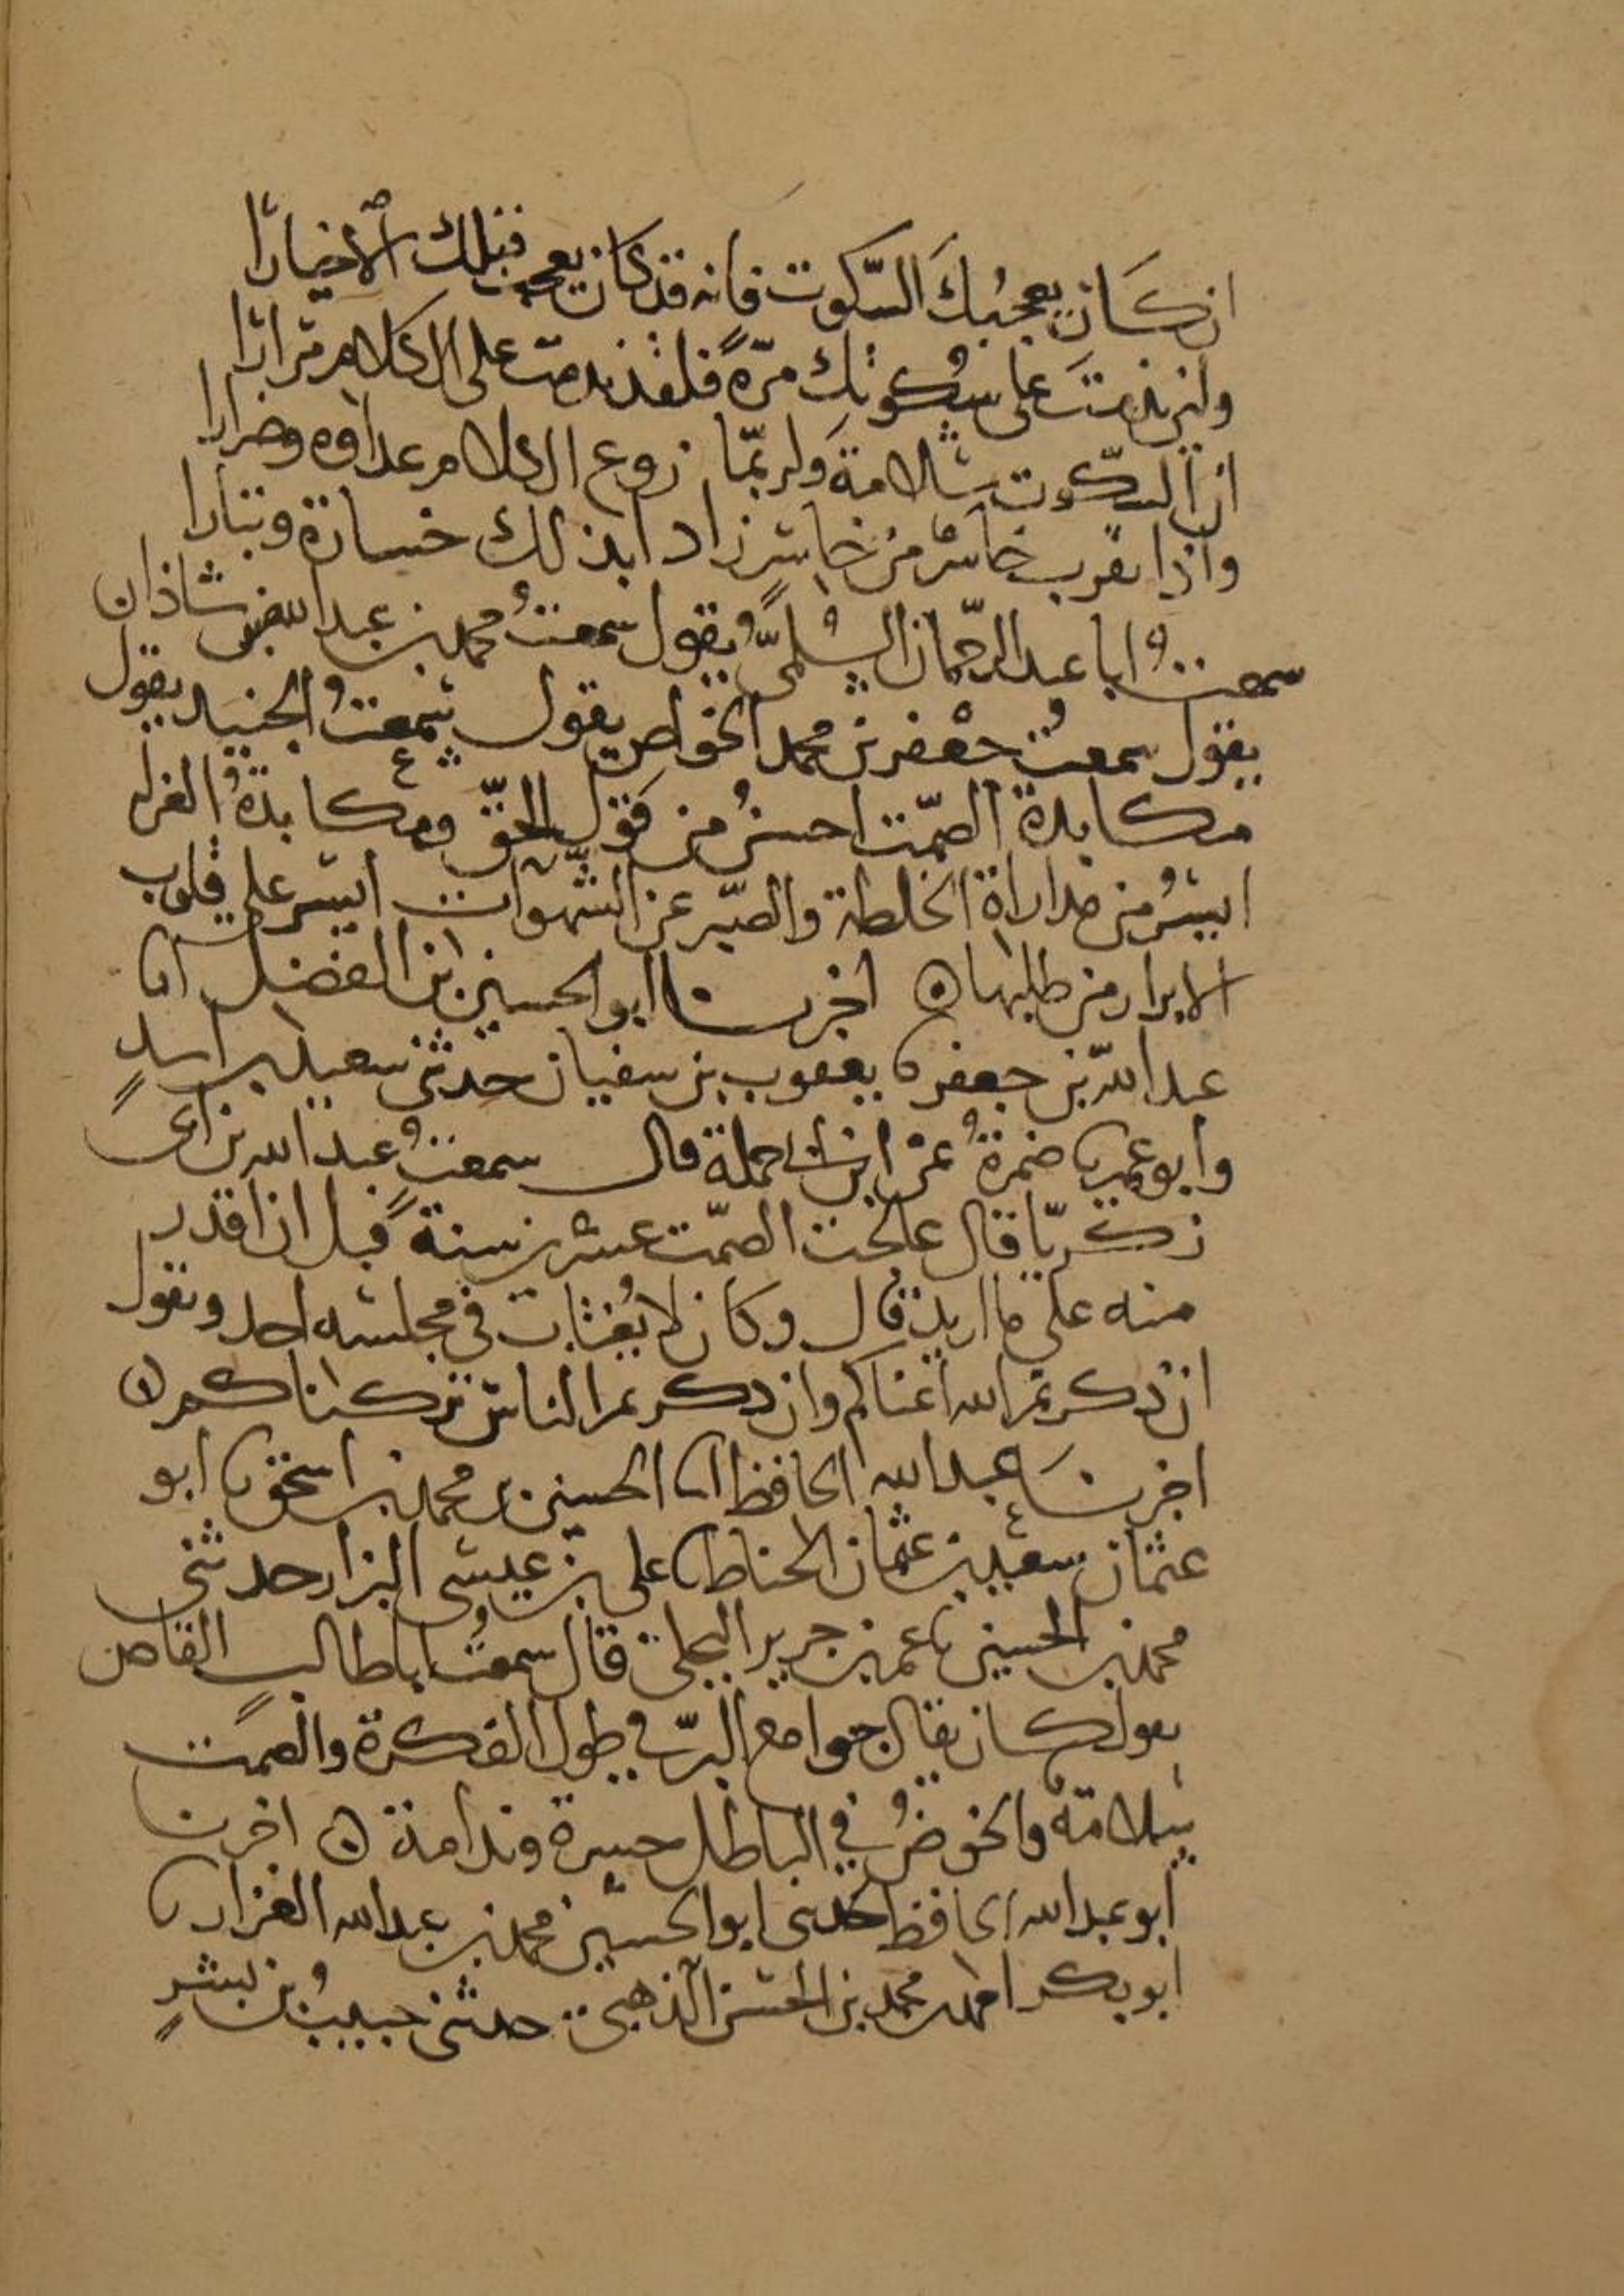 ان كان يعجبك السكوت فانه قد كان يعجب قبلك الاخيارا
ولئن ندمتَ على سكوتك مرّةً فلقد ندمت على الكلام مرارا
ان السكوت سلامة ولربمّا زرع الكلام عداوه وضرارا
واذا تقرب خاسر من خاسر زادا بذلك خسارة وتبارا
سمعتُ ابا عبد الرحمان السلميّ يقول سمعتُ محمد بن عبد الله بن شاذان
يقول سمعتُ جعفر بن محمد الخواص يقول سمعتُ الجنيد يقول
مكابدة الصّمت احسنُ من قول الحقّ ومكابدةُ العزلة
ايسرُ من مداراة الخلطة والصّبر عن الشّهوات ايسر على قلوب
الابرار من طلبها ه اخبرنا ابو الحسين ابن الفضل انا
عبد الله بن جعفر نا يعقوب بن سفيان حدثنى سعيد بن اسدٍ
وابو عمير نا ضمرةُ عن ابن ابي حملة قال سمعتُ عبد الله بن ابى
زكريّا قال عالجت الصّمت عشرين سنةً قبل ان اقدر
منه على ما اريد قال وكان لا يُغتاب في مجلسه احد ويقول
ان ذكرتم الله اعناكم وان ذكرتم الناس تركناكم ه
اخبرنا عبد الله الحافظ انا الحسين بن محمد بن اسحق نا ابو
عثمان سعيد بن عثمان الحناط نا على بن عيسى البزار حدثنى
محمد بن الحسين نا عمر بن جرير البجلى قال سمعتُ ابا طالبٍ القاص
يقول كان يقال جوامع البرّ في طول الفكرة والصمت
سلامة والخوضُ في الباطل حسرة وندامة ه اخبرنا
ابو عبد الله الحافظ حدثنى ابو الحسين محمد بن عبد الله القزاز نا
ابو بكر احمد بن محمد بن الحسن الذهبي حدثنى حبيبُ بن بشرٍ